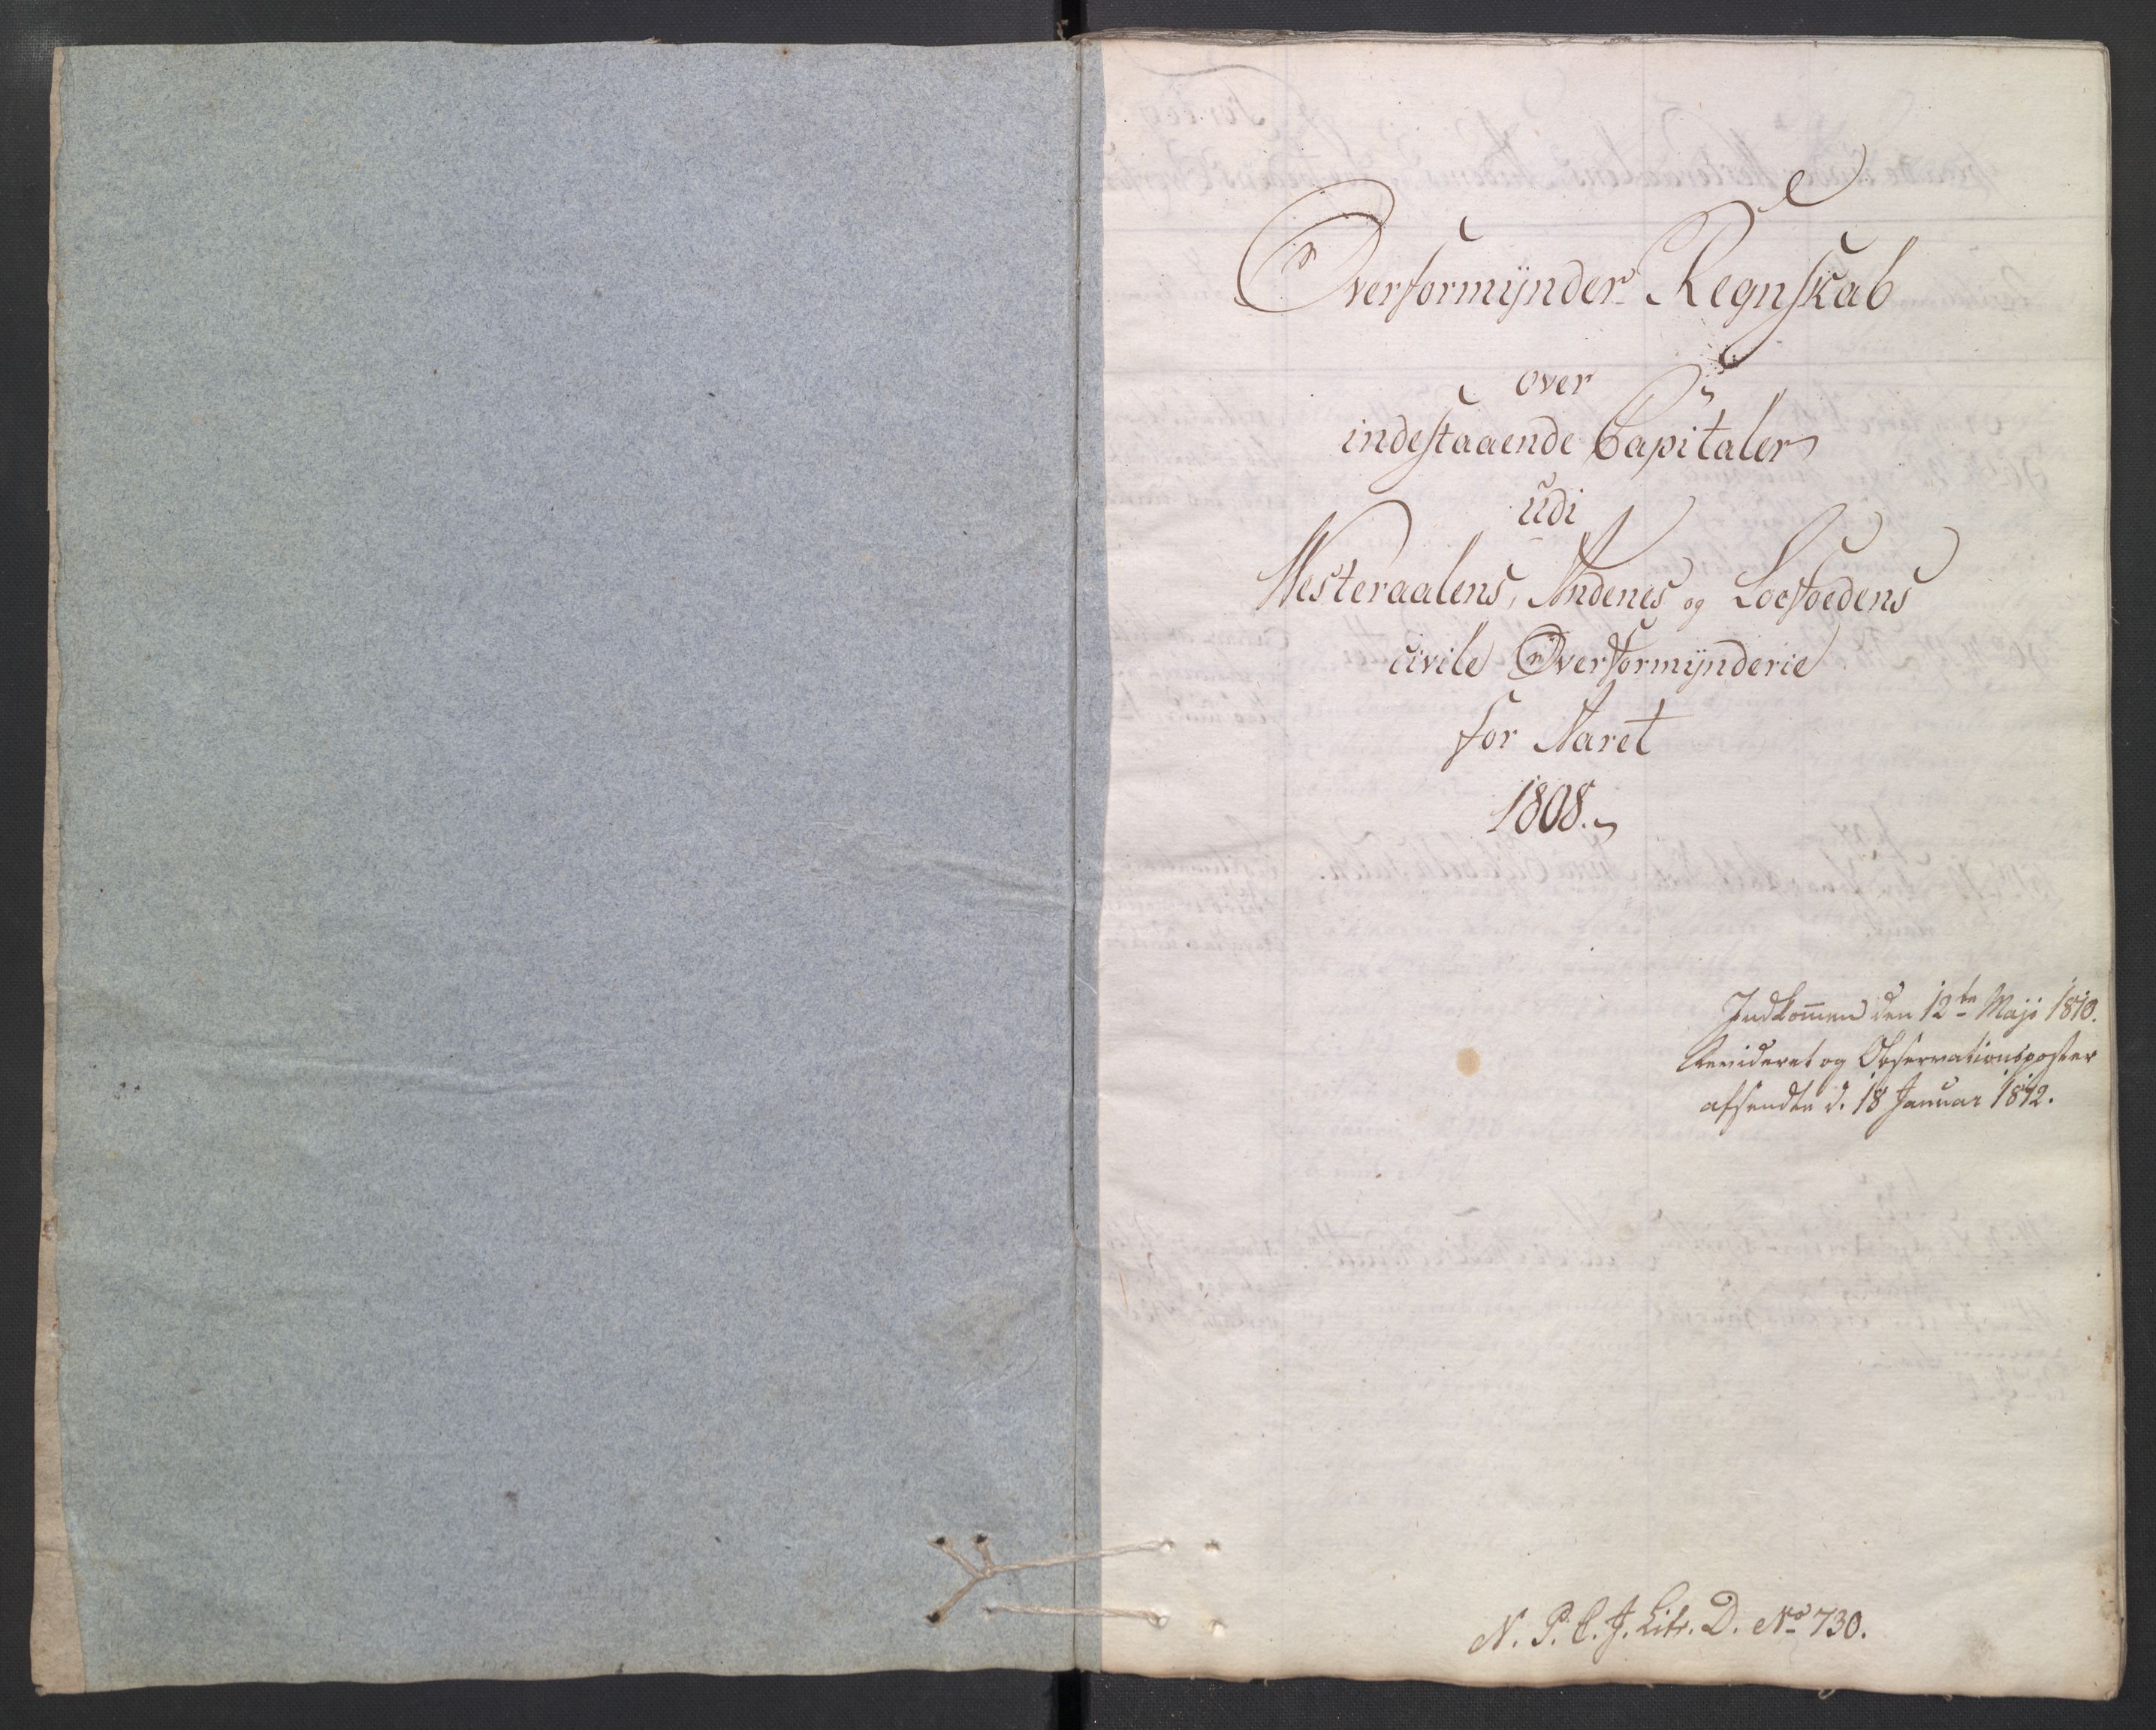 Overformÿnder Regnskab
over
indestaaende Capitaler
udi
Westeraalens, Andenes og Loefoedens
civile Overformÿnderie
for Aaret
1808.
Indkom̄en den 12te Maji 1810.
Revideret og Observationsposter
afsendte d. 18 Januar 1812.
N. P. C. J. Litr. D. No 730.